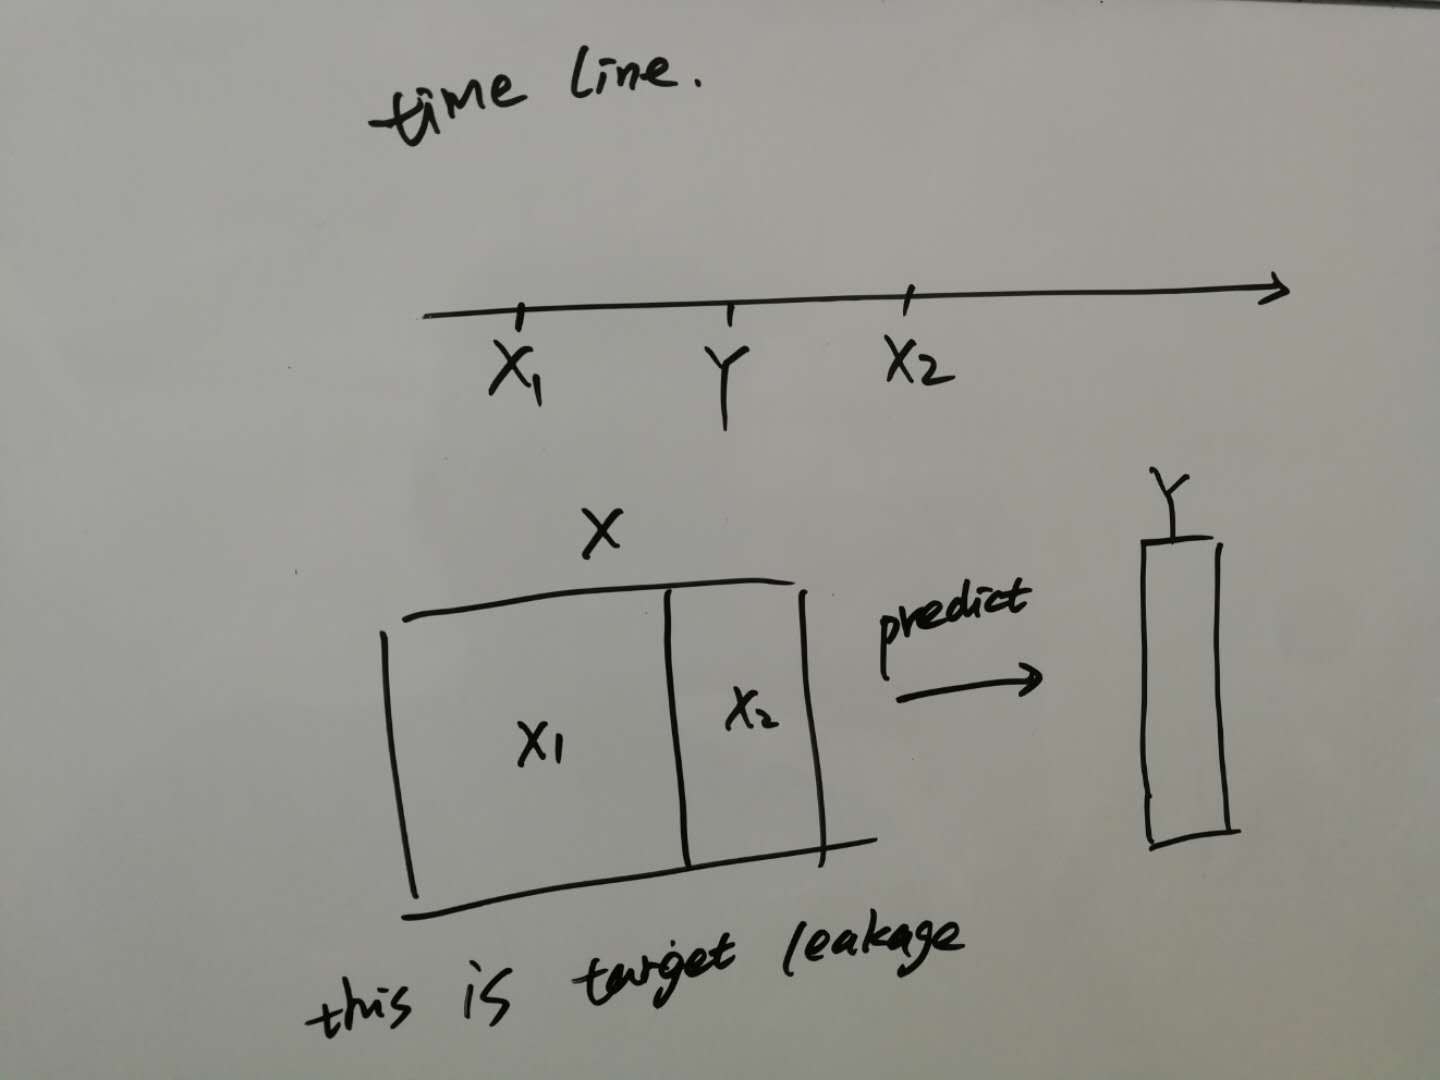 time line.
X₁ Y X₂
X
Y
predict
X₁ X₂
this is target leakage